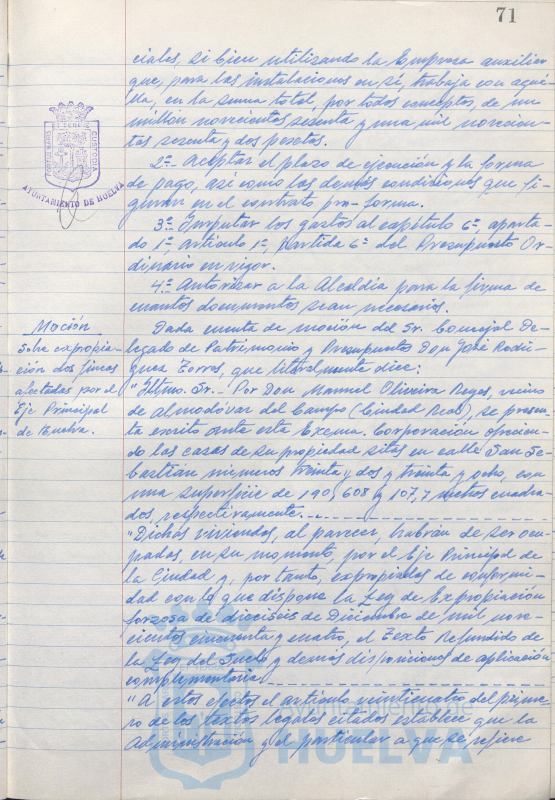 71
ciales, si bien utilizando la Empresa auxiliar
que, para las instalaciones en sí, trabaja con aque-
lla, en la suma total, por todos conceptos, de un
millon novecientos sesenta y una mil novecien-
tas sesenta y dos pesetas.
2º.- Aceptar el plazo de ejecución y la forma
de pago, así como las demás condiciones que fi-
guran en el contrato pro-forma.
3º.- Imputar los gastos al capítulo 6º, aparta-
do 1º, artículo 1º, partida 6ª del Presupuesto Or-
dinario en vigor.
4º.- Autorizar a la Alcaldía para la firma de
cuantos documentos sean necesarios.
AYUNTAMIENTO DE HUELVA
Moción
Sobre expropia-
ción dos fincas
afectadas por el
Eje Principal
de Huelva.
Dada cuenta de moción del Sr. Concejal De-
legado de Patrimonio y Presupuesto Don José Rodrí-
guez Torres, que literalmente dice:
"Iltmo. Sr.- Por Don Manuel Oliveira Reyes, vecino
de Almodóvar del Campo (Ciudad Real), se presen-
ta escrito ante esta Excma. Corporación ofrecien-
do las casas de su propiedad sitas en calle San Se-
bastián números treinta y dos y treinta y ocho, con
una superficie de 190,608 y 107,7 metros cuadra-
dos, respectivamente.
"Dichas viviendas, al parecer, habrán de ser ocu-
padas, en su momento, por el Eje Principal de
la Ciudad y, por tanto, expropiadas de conformi-
dad con lo que dispone la Ley de Expropiación
forzosa de dieciséis de Diciembre de mil nove-
cientos cincuenta y cuatro, el Texto Refundido de
la Ley del Suelo y demás disposiciones de aplicación
complementaria.
"A estos efectos el artículo veinticuatro del prime-
ro de los textos legales citados establece que la
Administración y el particular a que se refiere
Ayuntamiento de
HUELVA